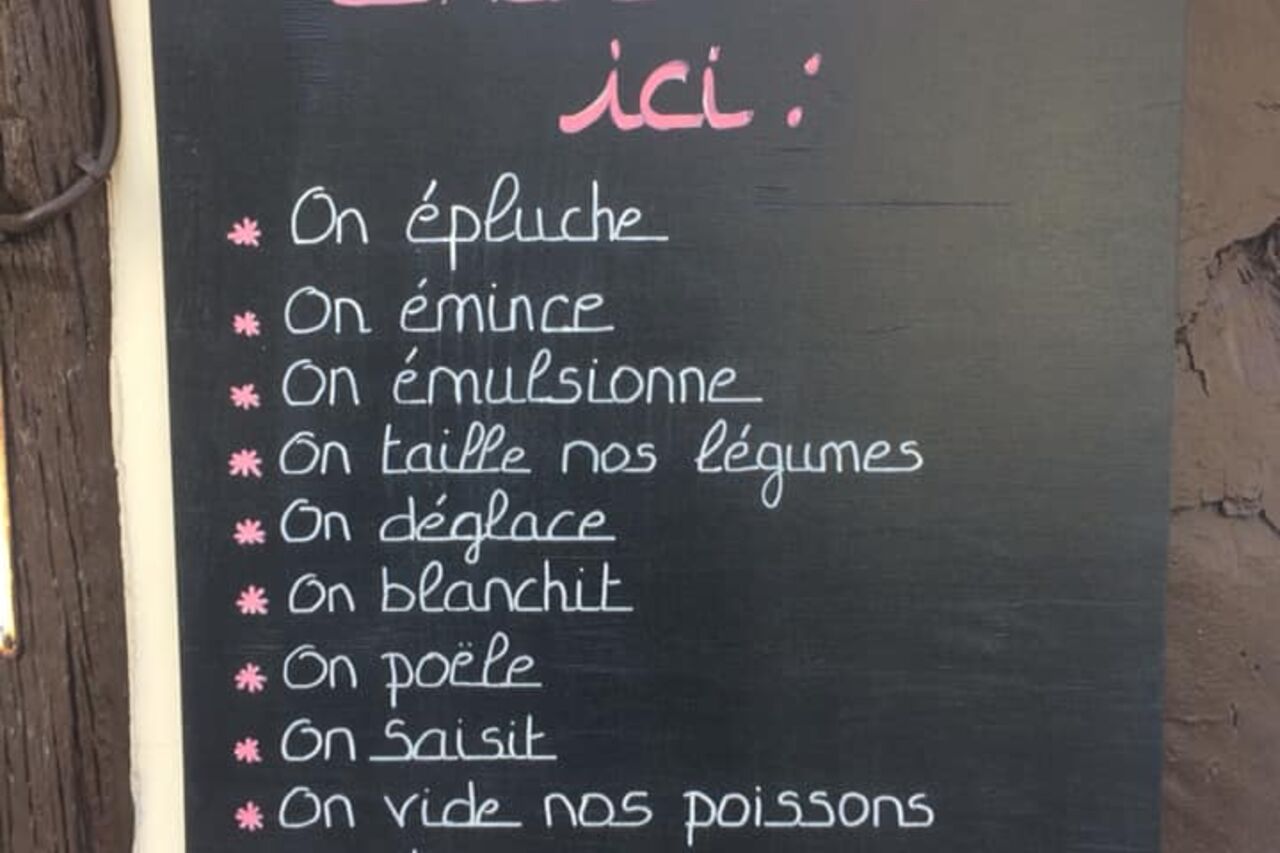 ici :
* On épluche
* On émince
* On émulsionne
* On taille nos légumes
* On déglace
* On blanchit
* On poële
* On saisit
* On vide nos poissons